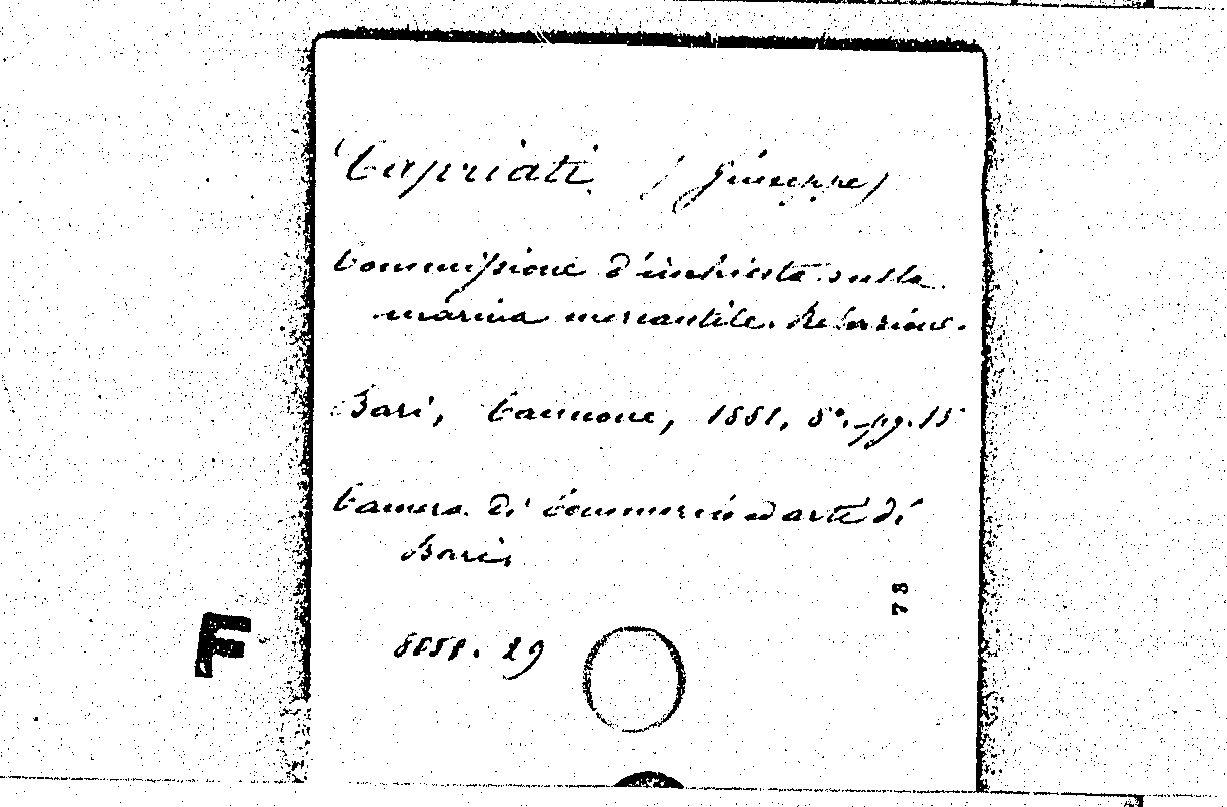 Capriati (Giuseppe)
Commissione d'inchiesta sulla
marina mercantile. Relazione.
Bari, Cannone, 1881, 8°. pg. 15
Camera di Commercio ed arti di
Bari.
78
29
F